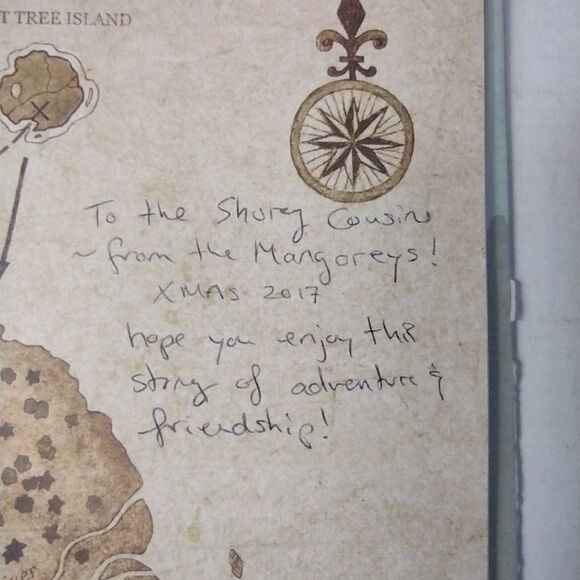 T TREE ISLAND
To the Shorey Cousins
~from the Mangoreys!
XMAS 2017
hope you enjoy this
story of adventure &
friendship!